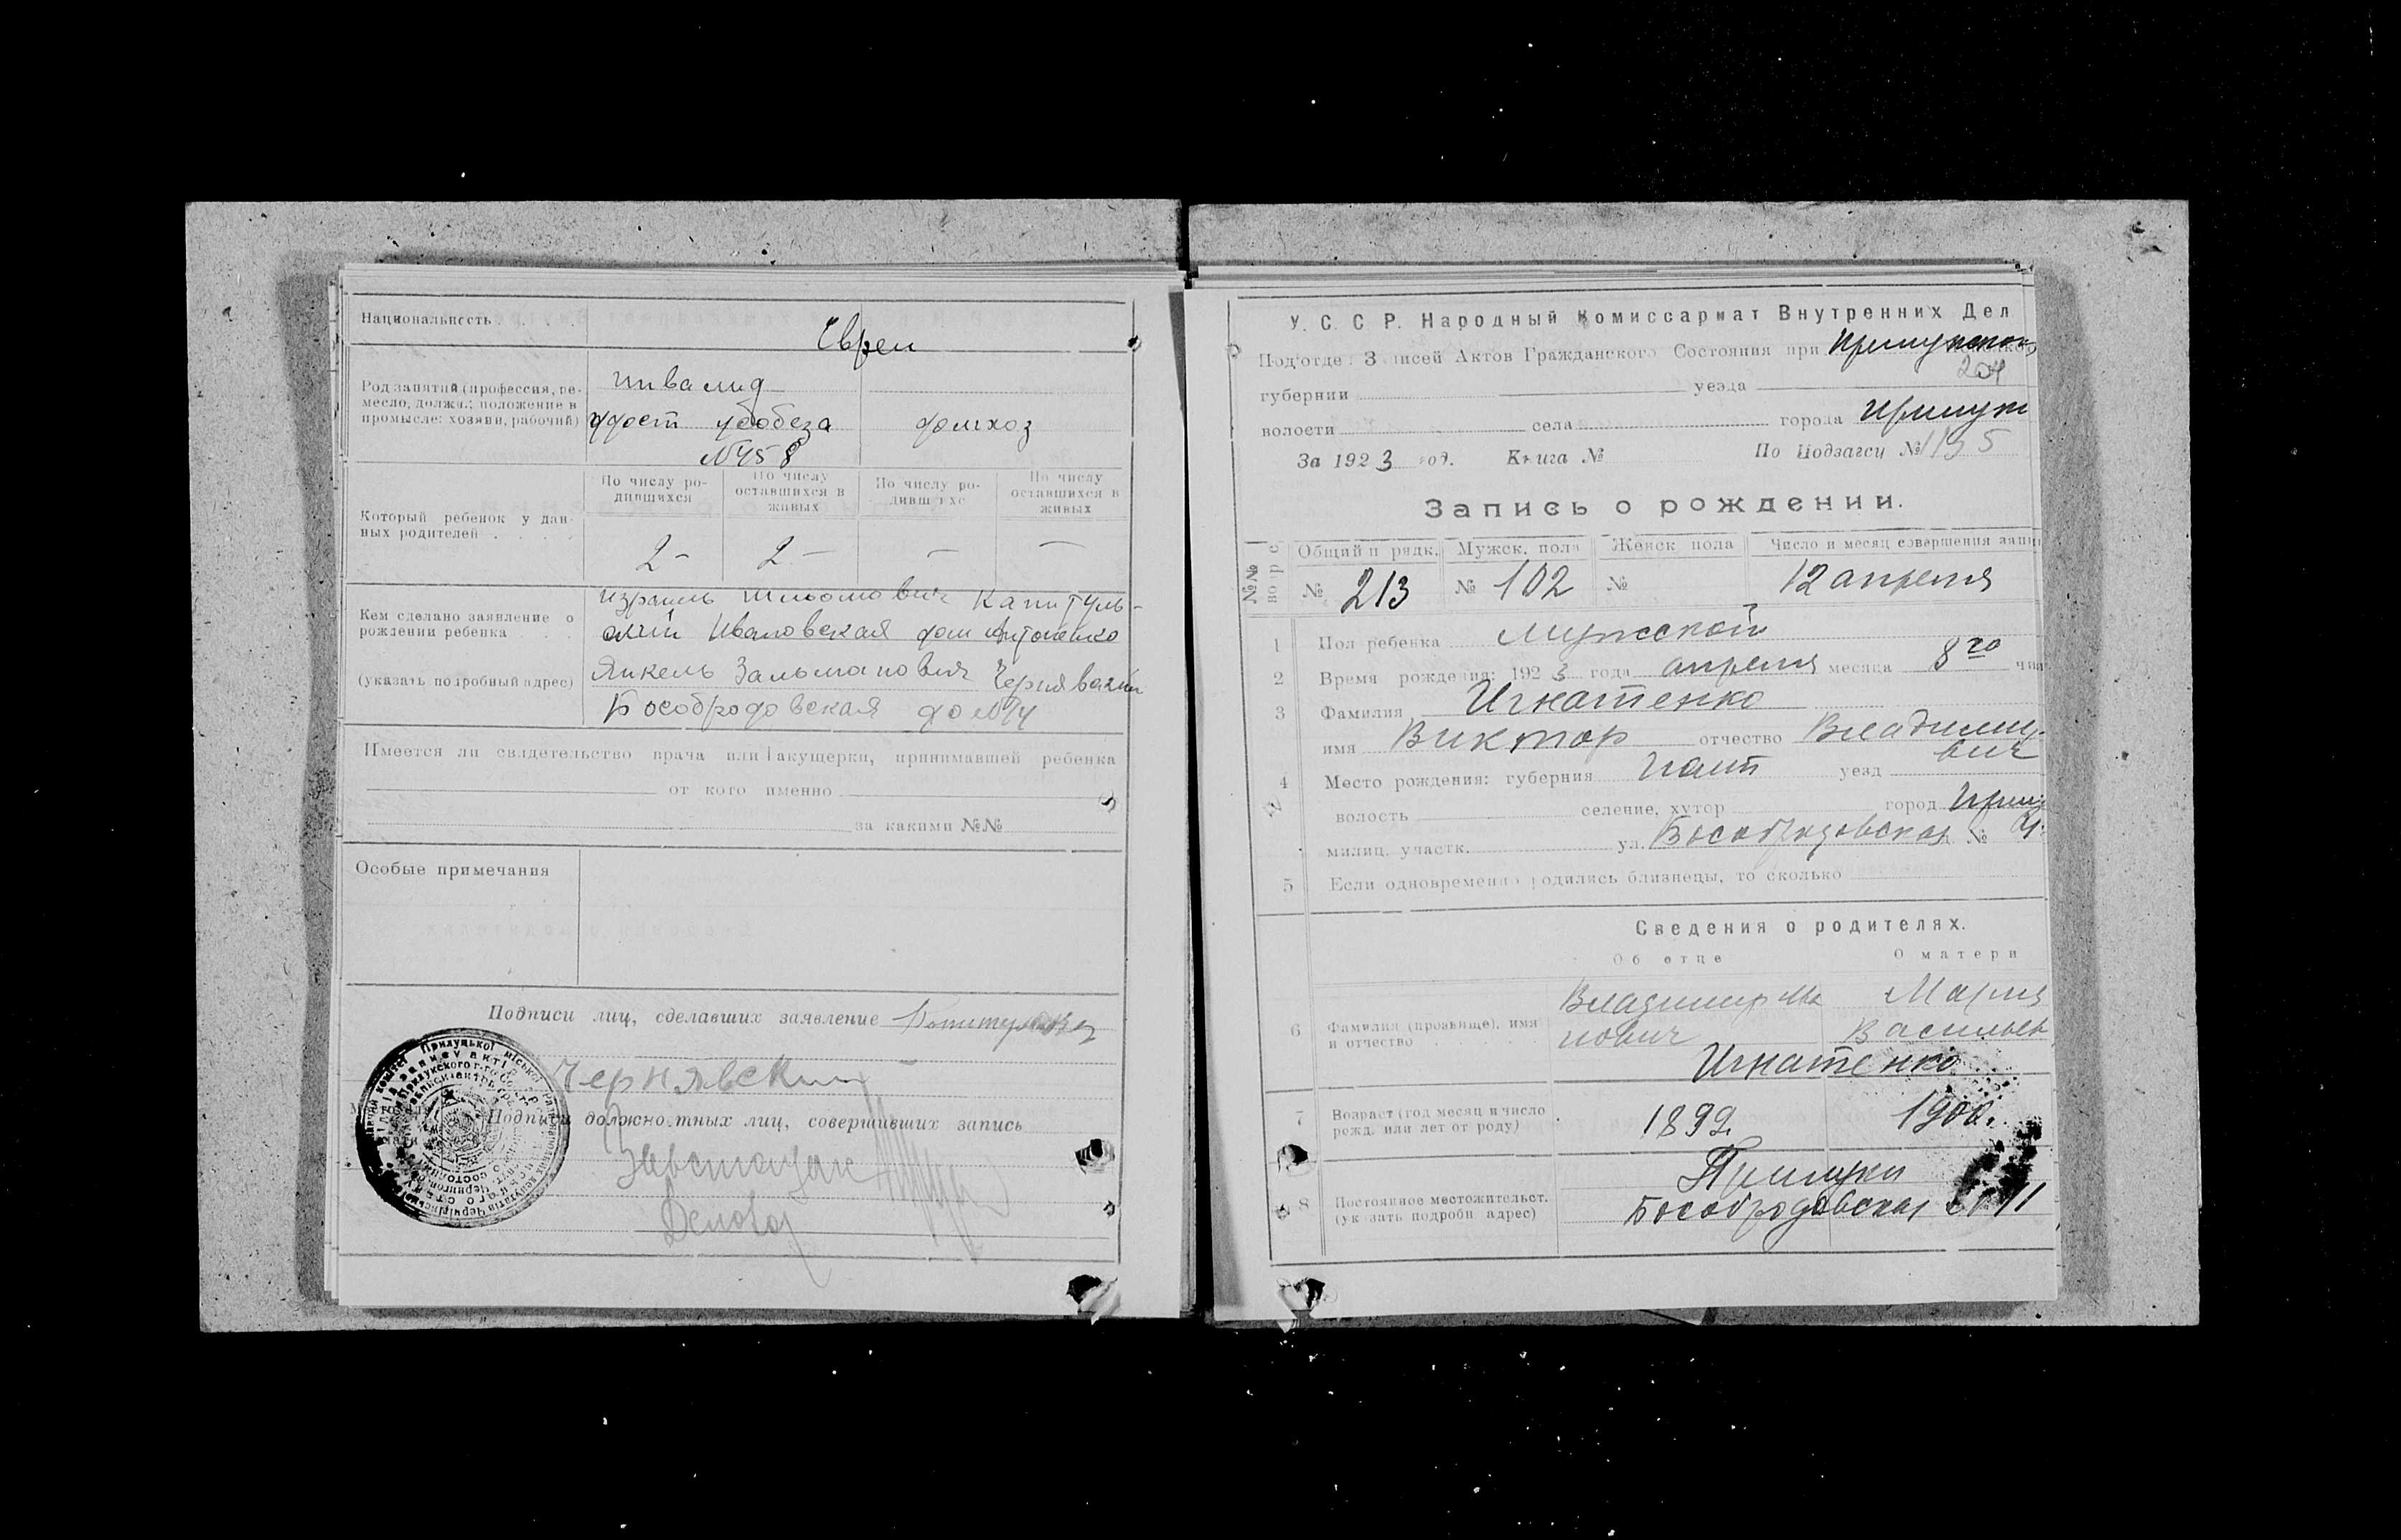 Национальность . . . .
Евреи
Род занятий (профессия, ре-
месло, должн.; положение в
промысле: хозяин, рабочий)
инвалид
удост собеза домхоз
№458
По числу ро-
дившихся
По числу
оставшихся в
живых
По числу ро-
дивш хс
По числу
оставшихся в
живых
Который ребенок у дан-
ных родителей . . . .
2 - 2 - - -
Кем сделано заявление о
рождении ребенка . . .
(указать подробный адрес)
Израиль Шльомович Капитуль-
ский Ивановская дом Антоненко
Янкель Зальманович Чернявский
Бособродовская
Имеется ли свидетельство врача или акушерки, принимавшей ребенка
от кого именно
за какими №№
Особые примечания
Подписи лиц, сделавших заявление
Чернявский
Подписи должностных лиц, совершивших запись
У. С. С. Р. Народный Комиссариат Внутренних Дел
Под'отде. Записей Актов Гражданского Состояния при Прилукском
204
губернии уезда
волости села города Прилуки
За 1923 год. Книга № По Подзагсу №1195
Запись о рождении.
Общий п рядк. Мужск. пола Женск пола Число и месяц совершения запи
№ 213 № 102 № 12 апреля
1 Пол ребенка мужской
2 Время рождения: 1923 года апреля месяца 8 20 час
3 Фамилия Игнатенко
имя Виктор отчество Владимир-
вич
4 Место рождения: губерния Полт уезд
волость селение, хутор город Прилу
милиц. участк. ул. Бособродовская №
5 Если одновременно родились близнецы, то сколько
Сведения о родителях.
Об отце О матери
6 Фамилия (прозвище), имя
и отчество . . . . .
Владимир Ива
нович
Мария
Васильев
Игнатенко
7 Возраст (год месяц и число
рожд. или лет от роду)
1899. 1900.
8 Постоянное местожительст.
(указать подробн. адрес)
Прилуки
Бособродовская